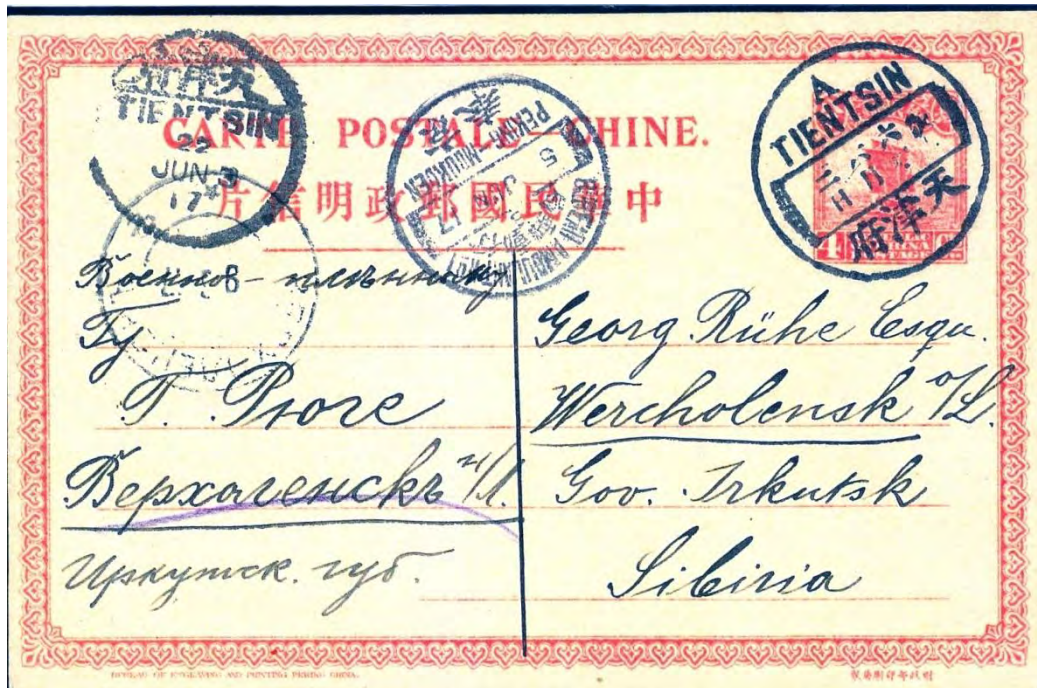 CARTE POSTALE—CHINE.
中華民國郵政明信片
TIENTSIN
22
JUN 3
17
PEKING MOUKDEN
A
TIENTSIN
天津府
Военно-плѣнному
Гу
Г. Рюге
Верхоленскъ н/Л.
Иркутск. губ.
Georg Rühe Esqu.
Wercholensk o/L.
Gov. Irkutsk
Sibiria
BUREAU OF ENGRAVING AND PRINTING PEKING CHINA.
財政部印刷局製